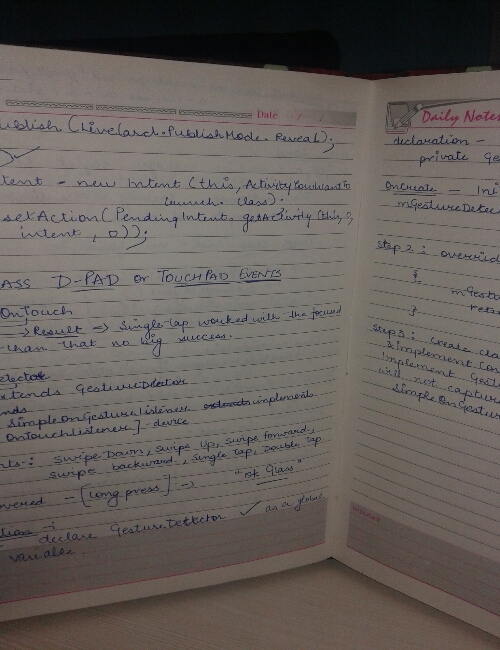 Date
ublish (LiveCard.PublishMode.Reveal);
tent - new Intent (this, ActivityYouWant to
Launch.class);
setAction (PendingIntent.getActivity (this, 0,
intent, 0));
ASS D-PAD or TOUCHPAD EVENTS
OnTouch
→ Result => Single tap worked with the focused
than that no big success.
xtends GestureDetector
SimpleOnGestureListener implements
OnTouchListener] - device
nts : Swipe Down, swipe up, swipe forward,
swipe backward, single tap, double tap
overed - [long press] -> "ok Glass"
declare GestureDetector ✓ as a global
variable.
Daily Notes
declaration -
private Ges
OnCreate - Ini
mGestureDetec
Step 2 : overrid
{
mGestu
retu
}
Step 3 : create cla
& implement con
implement Gest
will not captur
SimpleOnGestur